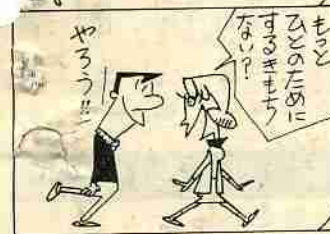 もっと
ひとのために
するきもち
ない?
やろう!!